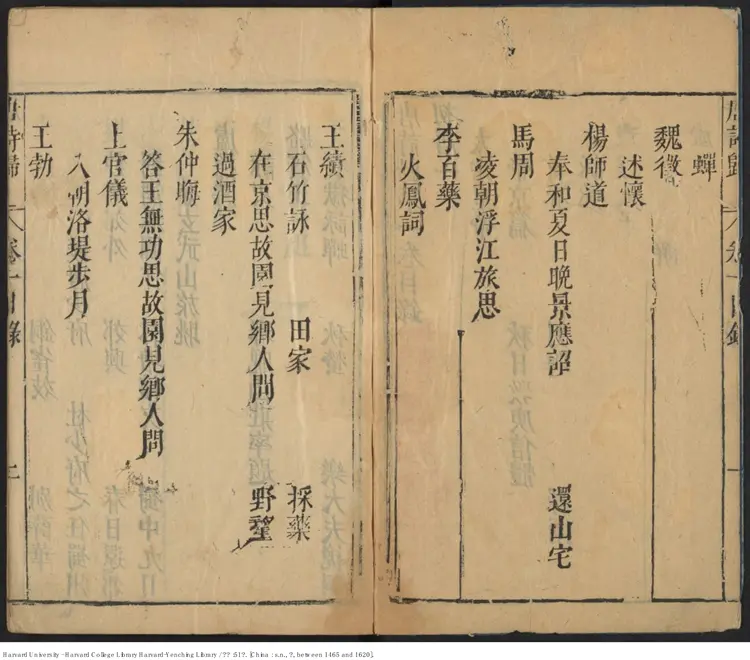 蟬
魏徵
述懷
楊師道
奉和夏日晚景應詔 還山宅
馬周
凌朝浮江旅思
李百藥
火鳳詞
王績
石竹詠 田家 採藥
在京思故園見鄉人問 野望
過酒家
朱仲晦
答王無功思故園見鄉人問
上官儀
入朝洛堤步月
王勃
唐詩歸 卷一目錄
Harvard University - Harvard College Library Harvard-Yenching Library / ?? :51?. [China : s.n., ?, between 1465 and 1620].